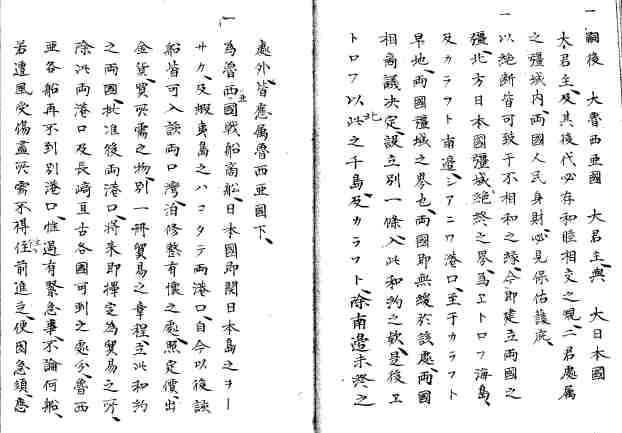 一嗣後　大魯西亜國　大君主與　大日本國
大君主及其後代必存和睦相交之規二君處属
之彊域内両國人民身財必見保佑護庇
一以絶断皆可致于不相和之縁今即建立両國之
彊北方日本國彊域絶終之界為ヱトロフ海島
及カラフト南邉シアニワ港口至于カラフト
早地両國彊域之界也両國即無緩於該處両國
相商議决定設立別一條入此和約之欵是後ヱ
トロフ以北此之千島及カラフト除南邉未終之
處外皆應属魯西亜國下
一為魯西亜國戦船商船日本國即開日本島之ヲー
サカ及蝦夷島之ハコタテ両港口自今以後該
船皆可入該両口灣泊修整有懐之處照定價出
金貨買所需之物別一冊貿易之章程立此和約
之両國批准後両港口將来即擇定為貿易之所
除此両港口及長﨑亘古各國可到之處分魯西
亜各船再不到別港口惟遇有緊急事不論何船
若遭風受傷盖所需不得任往前進之便因急須應